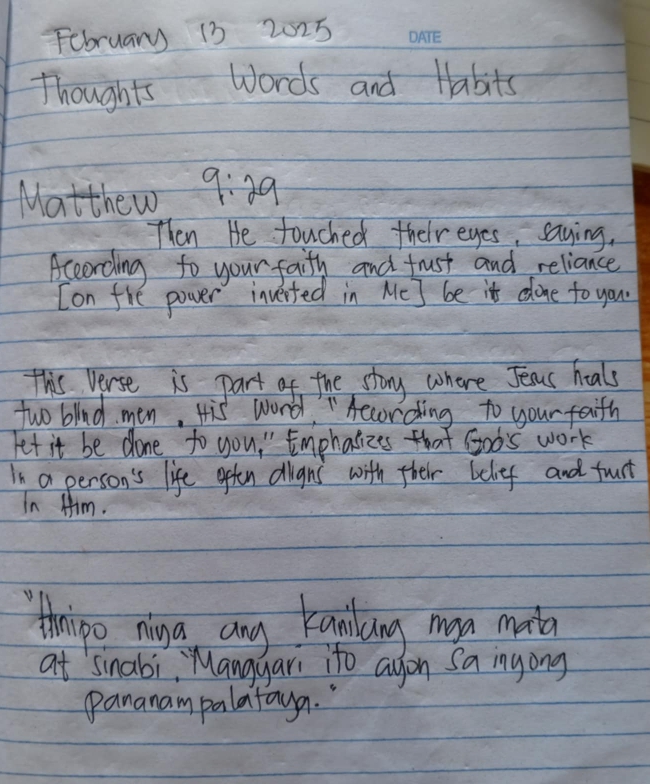 February 13 2025
DATE
Thoughts Words and Habits
Matthew 9:29
Then He touched their eyes, saying,
According to your faith and trust and reliance
[on the power inverted in Me] be it done to you.
This verse is part of the story where Jesus heals
two blind men. His word, "According to your faith
let it be done to you," Emphasizes that God's work
in a person's life often aligns with their belief and trust
in Him.
"Hinipo niya ang kanilang mga mata
at sinabi, "Mangyari ito ayon sa inyong
pananampalataya."